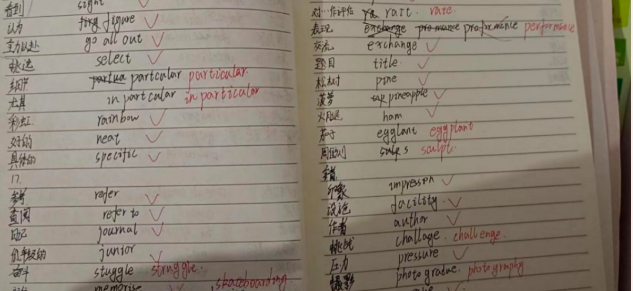 看到 sight
认为 figure
全力以赴 go all out
挑选 select
particular particular
尤其 in particular in particular
彩虹 rainbow
好的 neat
具体的 specific
17.
参考 refer
查阅 refer to
日记 journal
年级的 junior
奋斗 stuggle struggle.
skateboarding
rait. rate.
表现 exchange performance
交流 exchange
题目 title
松树 pine
菠萝 pineapple
火腿 ham
茄子 egglant eggplant
雕刻 sculpt.
印象 impression
设施 facility
作者 author
挑战 challage. challenge.
压力 pressure
摄影 photography